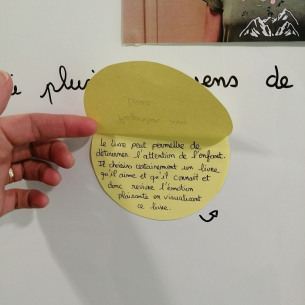 plus
ens de
Le livre peut permettre de
détourner l'attention de l'enfant.
Il choisira certainement un livre
qu'il aime et qu'il connaît et
donc revivre l'émotion
plaisante en visualisant
ce livre.